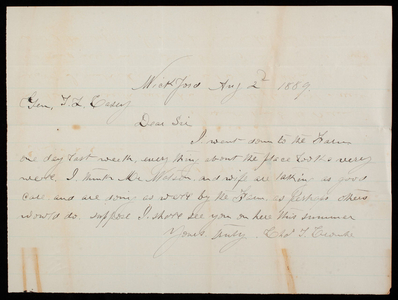 Wickford Aug 2d 1889.
Gen. T. L. Casey
Dear Sir
I went down to the Farm
one day last week, every thing about the place looks very
well. I think Mr and wife are taking as good
care and are doing as well by the Farm as perhaps others
would do. suppose I shall see you on here this summer
Yours truly Chas T.